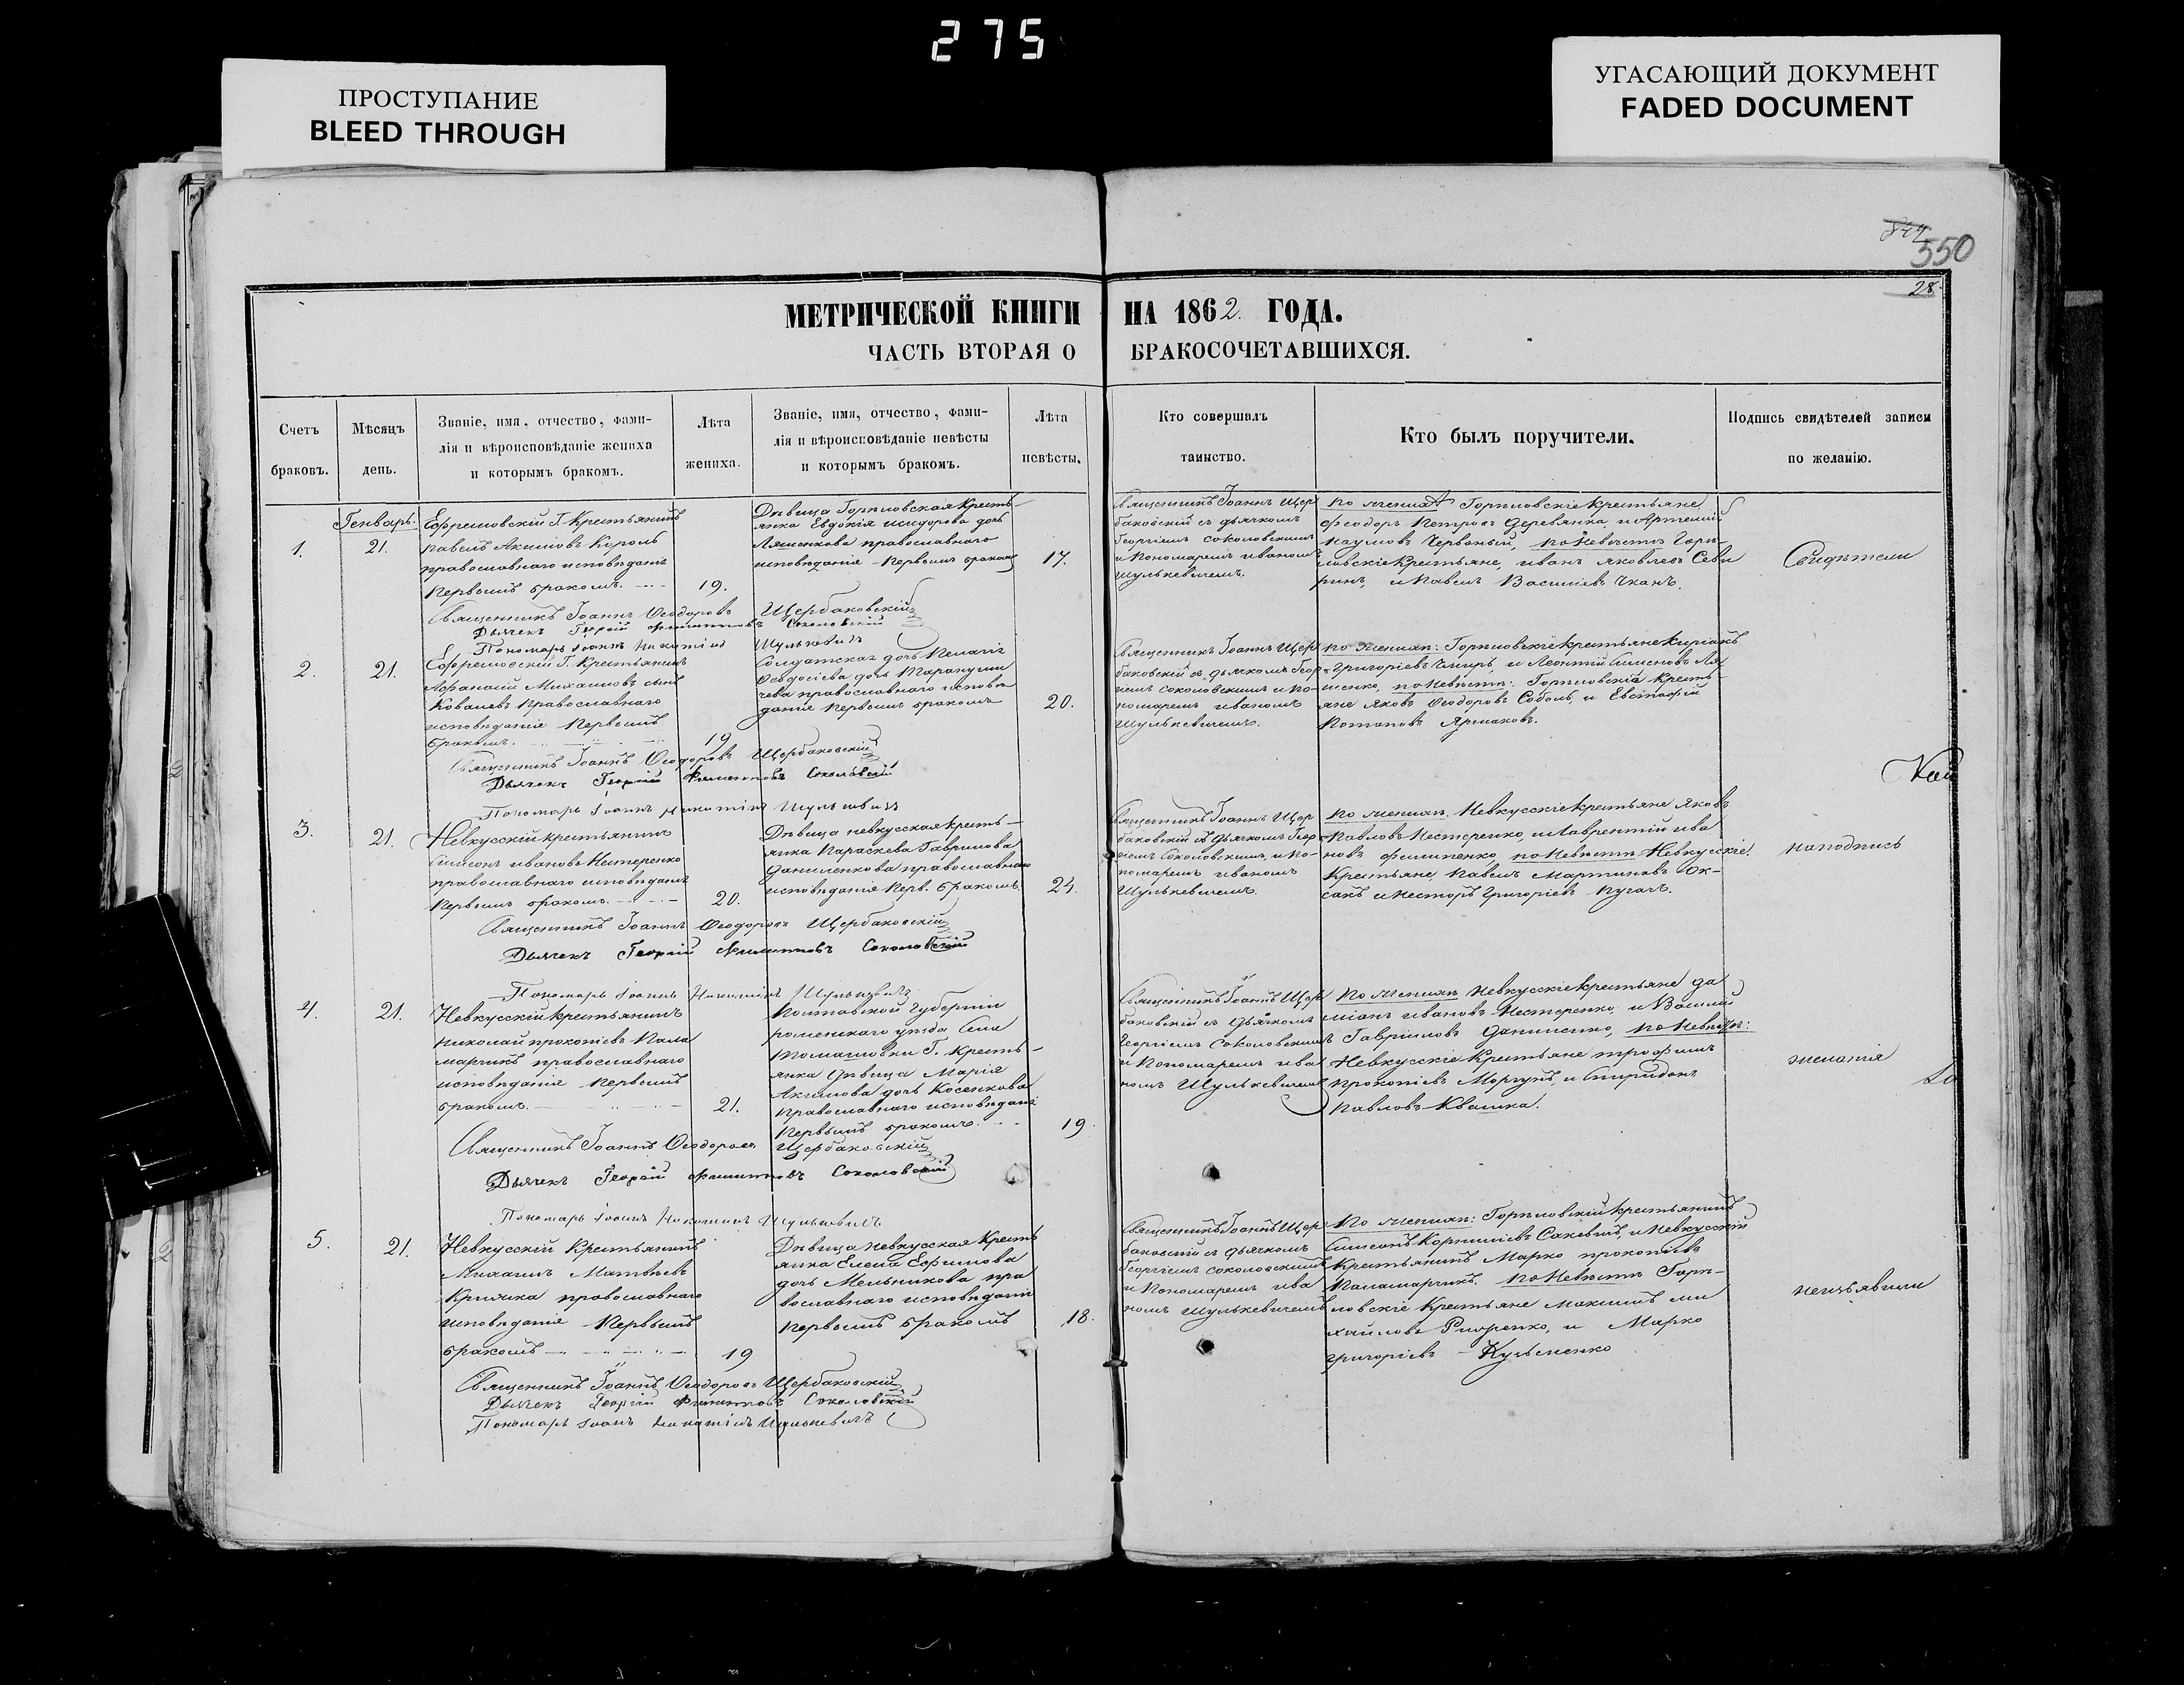 275
ПРОСТУПАНИЕ
BLEED THROUGH
УГАСАЮЩИЙ ДОКУМЕНТ
FADED DOCUMENT
550
28.
МЕТРИЧЕСКОЙ КНИГИ НА 1862. ГОДА.
ЧАСТЬ ВТОРАЯ О БРАКОСОЧЕТАВШИХСЯ.
Счетъ
браковъ.
Мѣсяцъ
день.
Званіе, имя, отчество, фами-
лія и вѣроисповѣданіе жениха
и которымъ бракомъ.
Лѣта
жениха.
Званіе, имя, отчество, фами-
лія и вѣроисповѣданіе невѣсты
и которымъ бракомъ.
Лѣта
невѣсты.
Кто совершалъ
таинство.
Кто былъ поручители.
Подпись свидѣтелей записи
по желанію.
Генварь.
1.
21.
Ефремовскій Г. Крестьянинъ
Павелъ Акимовъ Король
православнаго исповѣданія
Первымъ бракомъ.
19.
Дѣвица Горѣловская кресть-
янка Евдокія Исидорова дочь
Ляшенкова православнаго
исповѣданія Первымъ бракомъ
17.
Священникъ Іоаннъ Щер
баковскій съ дьячкомъ
Георгіемъ Соколовскимъ
и Пономаремъ Иваномъ
Шулькевичемъ.
По женихѣ Горѣловскіе крестьяне
Феодоръ Петровъ Деревянка, и Артемій
Наумовъ Червоный, по Невѣстѣ Горѣ-
ловскіе крестьяне, Иванъ Яковлевъ Севи
ринъ, и Павелъ Василіевъ Чканъ.
Свидѣтели
Священникъ Іоаннъ Феодоровъ Щербаковскій
Дьячекъ Георгій Филипповъ Соколовскій
Пономарь Іоаннъ Шулькевичъ
2.
21.
Ефремовскій Г. Крестьянинъ
Афанасій Михаиловъ сынъ
Ковалевъ Православнаго
исповѣданія Первымъ
бракомъ.
19
Солдатская дочь Пелагія
Феодосіева дочь
чева православнаго исповѣ
данія Первымъ бракомъ
20.
Священникъ Іоаннъ Щер
баковскій съ дьячкомъ Геор-
гіемъ Соколовскимъ и По-
номаремъ Иваномъ
Шулькевичемъ.
По Женихѣ: Горѣловскіе крестьяне Киріакъ
Григоріевъ Чмиръ, и Леонтій Симеоновъ Ля-
шенко, по Невѣстѣ: Горѣловскіе кресть-
яне Яковъ Феодоровъ Соболь, и Евстафій
Потаповъ Ярмаковъ.
Священникъ Іоаннъ Феодоровъ Щербаковскій
Дьячекъ Георгій Филипповъ Соколовскій
Пономарь Іоаннъ Шулькевичъ
3.
21.
Невкусскій крестьянинъ
Симеонъ Ивановъ Нестеренко
православнаго исповѣданія
Первымъ бракомъ.
20.
Дѣвица невкусская кресть-
янка Параскева Гаврилова
Даниленкова православнаго
исповѣданія Перв. бракомъ.
24.
Священникъ Іоаннъ Щер
баковскій съ дьячкомъ Геор-
гіемъ Соколовскимъ, и По-
номаремъ Иваномъ
Шулькевичемъ.
По женихѣ. Невкусскіе крестьяне Яковъ
Павловъ Нестеренко, и Лаврентій Ива
новъ Филипенко, по Невѣстѣ Невкусскіе
Крестьяне Павелъ Мартиновъ Ок-
сакъ и Несторъ Григоріевъ Пугачъ.
наподпись
Священникъ Іоаннъ Феодоровъ Щербаковскій
Дьячекъ Георгій Филипповъ Соколовскій
Пономарь Іоаннъ Шулькевичъ
4.
21.
Невкусскій крестьянинъ
Николай Прокопіевъ Пала
марчикъ православнаго
исповѣданія Первымъ
бракомъ.
21.
Полтавской Губерніи
роменскаго уѣзда Села
Томашовки Г. Кресть-
янка Дѣвица Марія
Акимова дочь Косенкова
Православнаго исповѣданія
Первымъ бракомъ.
19.
Священникъ Іоаннъ Щер
баковскій съ Дьячкомъ
Георгіемъ Соколовскимъ
и Пономаремъ Ива
номъ Шулькевичемъ
По женихѣ Невкусскіе крестьяне Да
міанъ Ивановъ Нестеренко, и Василій
Гавриловъ Даниленко, по Невѣстѣ:
Невкусскіе Крестьяне Трофимъ
Прокопіевъ Моргунъ, и Спиридонъ
Павловъ Квашка.
желанія
Священникъ Іоаннъ Феодоровъ Щербаковскій
Дьячекъ Георгій Филипповъ Соколовскій
Пономарь Іоаннъ Шулькевичъ
5.
21.
Невкусскій Крестьянинъ
Михаилъ Матвѣевъ
Крижка православнаго
исповѣданія Первымъ
бракомъ
19
Дѣвица невкусская Кресть
янка Елена Ефимова
дочь Мельникова пра
вославнаго исповѣданія
Первымъ бракомъ
18.
Священникъ Іоаннъ Щер
баковскій съ дьячкомъ
Георгіемъ Соколовскимъ
и Пономаремъ Ива
номъ Шулькевичемъ
По женихѣ: Горѣловскій крестьянинъ
Симеонъ Корниліевъ Сакевичъ, и Невкусскій
Крестьянинъ Марко Прокопіевъ
Паламарчикъ. По Невѣстѣ Горѣ-
ловскіе Крестьяне Максимъ Ми
хайловъ и Марко
Григоріевъ Кузьменко
неизъявили
Священникъ Іоаннъ Феодоровъ Щербаковскій
Дьячекъ Георгій Филипповъ Соколовскій
Пономарь Іоаннъ Шулькевичъ